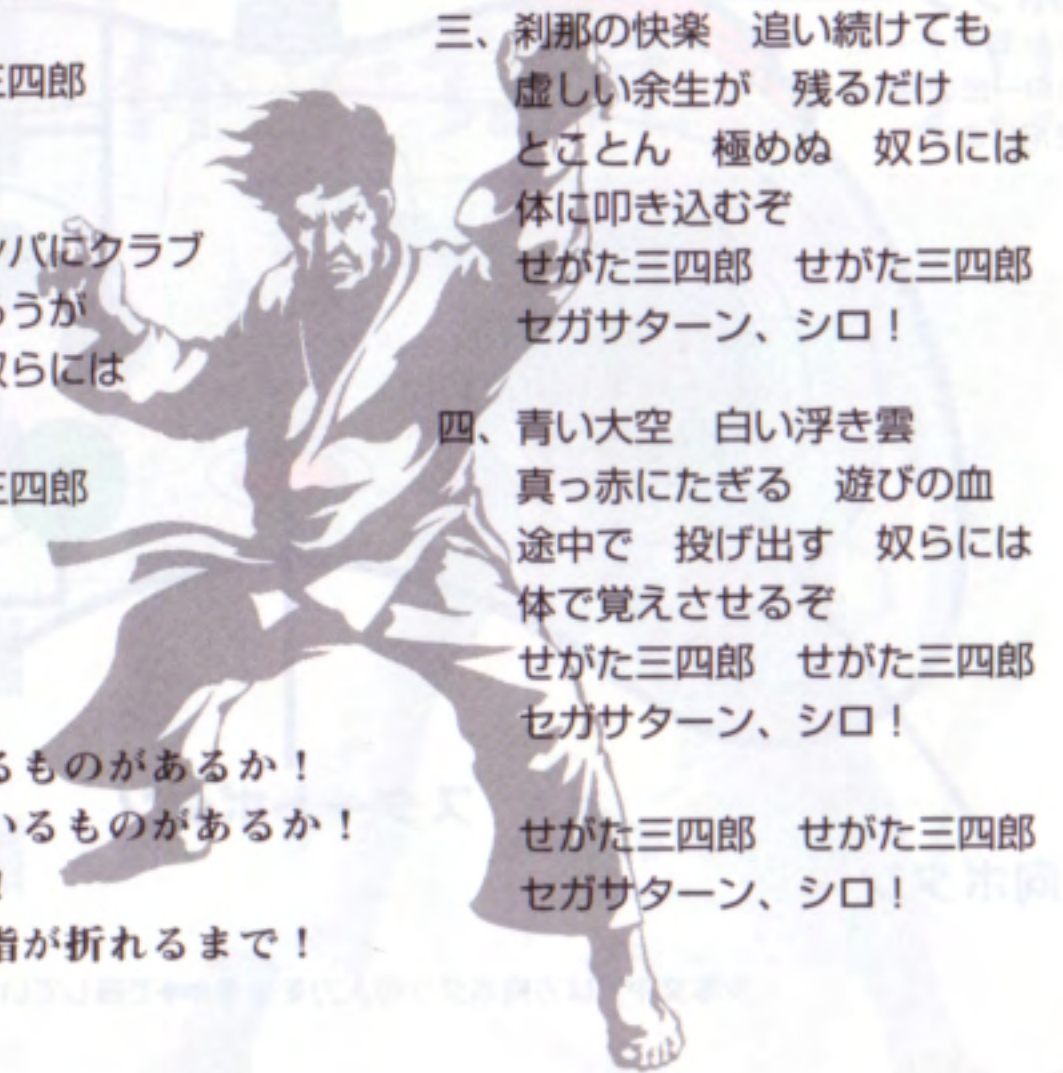 三四郎
ンパにクラブ
ゃうが
奴らには
三四郎
るものがあるか！
いるものがあるか！
！
指が折れるまで！
三、刹那の快楽　追い続けても
虚しい余生が　残るだけ
とことん　極めぬ　奴らには
体に叩き込むぞ
せがた三四郎　せがた三四郎
セガサターン、シロ！
四、青い大空　白い浮き雲
真っ赤にたぎる　遊びの血
途中で　投げ出す　奴らには
体で覚えさせるぞ
せがた三四郎　せがた三四郎
セガサターン、シロ！
せがた三四郎　せがた三四郎
セガサターン、シロ！